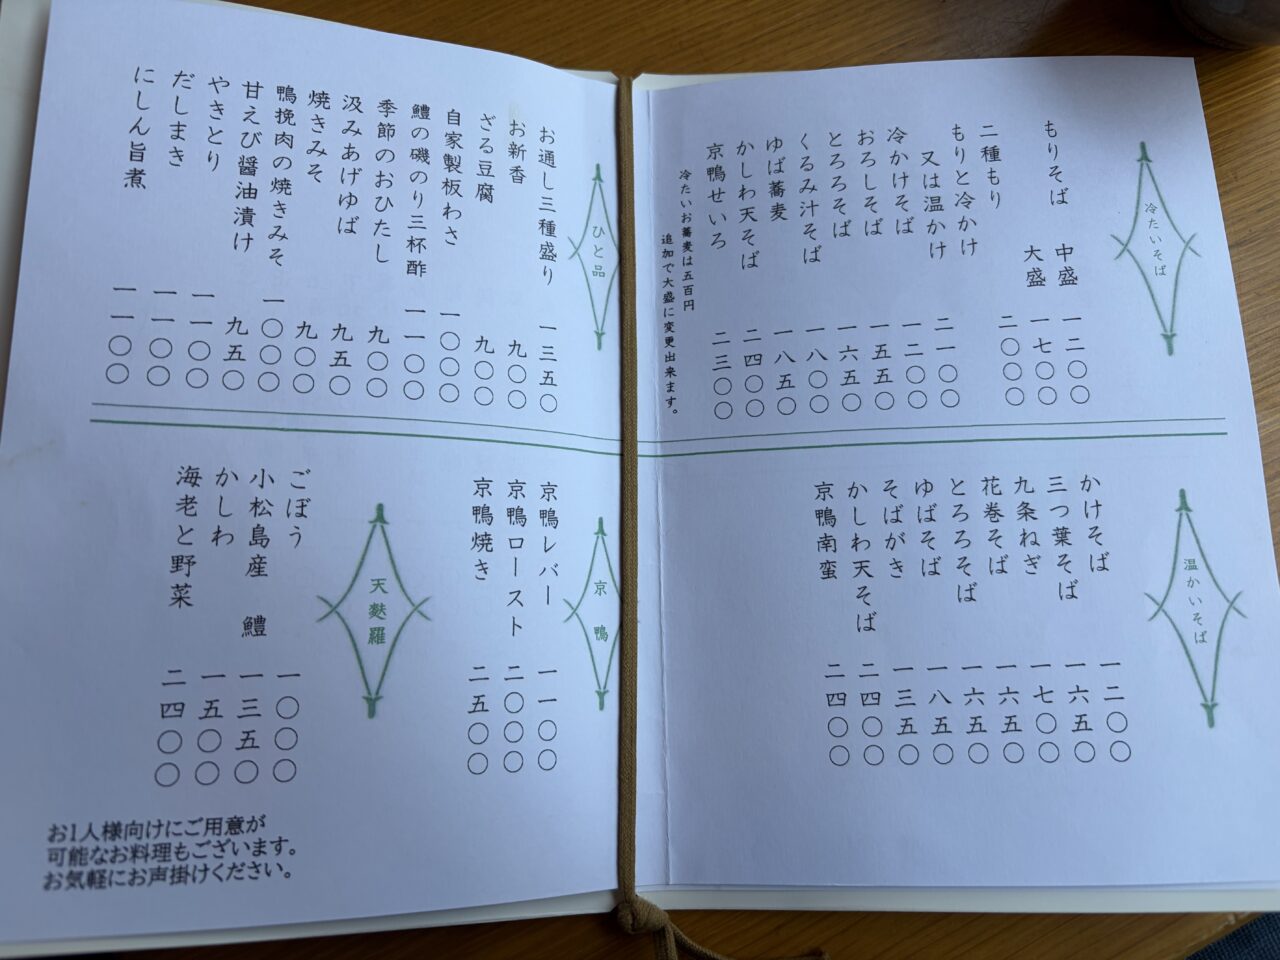 冷たいそば
もりそば 一二〇〇
中盛 一七〇〇
大盛 二〇〇〇
二種もり
もりと冷かけ
又は温かけ 二一〇〇
冷かけそば 一二〇〇
おろしそば 一五五〇
とろろそば 一六五〇
くるみ汁そば 一八〇〇
ゆば蕎麦 一八五〇
かしわ天そば 二四〇〇
京鴨せいろ 二三〇〇
冷たいお蕎麦は五百円
追加で大盛に変更出来ます。
温かいそば
かけそば 一二〇〇
三つ葉そば 一六五〇
九条ねぎ 一七〇〇
花巻そば 一六五〇
とろろそば 一六五〇
ゆばそば 一八五〇
そばがき 一三五〇
かしわ天そば 二四〇〇
京鴨南蛮 二四〇〇
ひと品
お通し三種盛り 一三五〇
お新香 九〇〇
ざる豆腐 九〇〇
自家製板わさ 一〇〇〇
鱧の磯のり三杯酢 一一〇〇
季節のおひたし 九〇〇
汲みあげゆば 九五〇
焼きみそ 九〇〇
鴨挽肉の焼きみそ 一〇〇〇
甘えび醤油漬け 九五〇
やきとり 一一〇〇
だしまき 一一〇〇
にしん旨煮 一一〇〇
京鴨
京鴨レバー 一一〇〇
京鴨ロースト 二〇〇〇
京鴨焼き 二五〇〇
天麩羅
ごぼう 一〇〇〇
小松島産 鱧 一三五〇
かしわ 一五〇〇
海老と野菜 二四〇〇
お1人様向けにご用意が
可能なお料理もございます。
お気軽にお声掛けください。